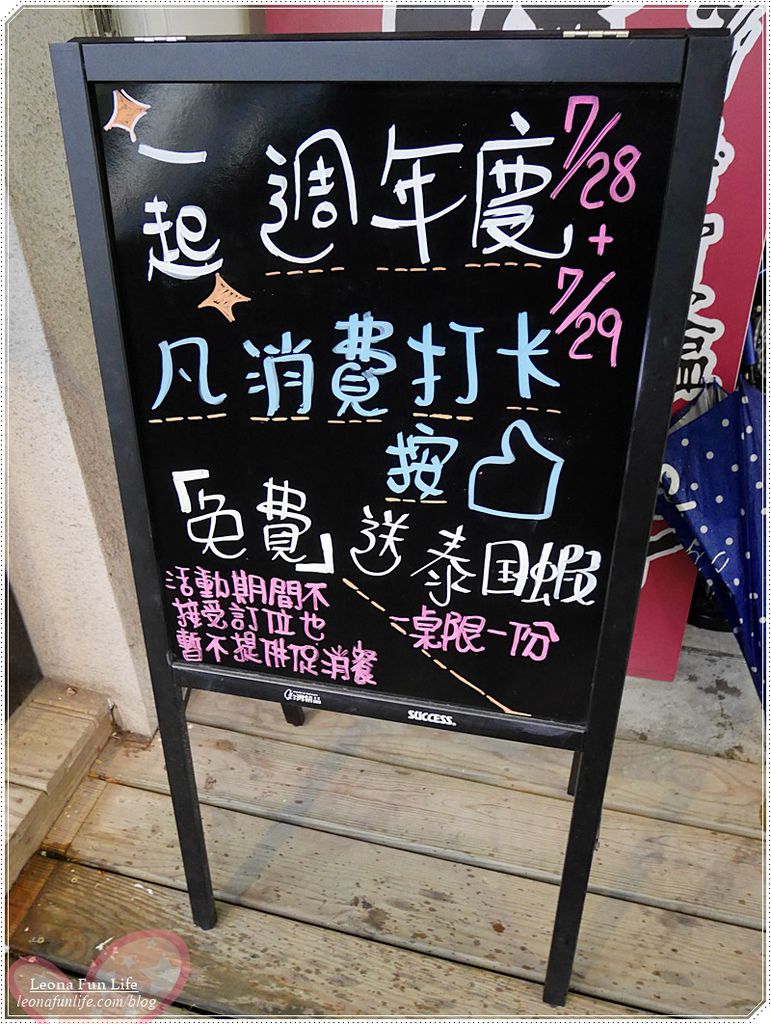 一起 週年度
7/28
+
7/29
凡消費打卡
按
「免費」送泰国蝦
一桌限一份
活動期間不
接受訂位也
暫不提供促消餐
台灣精品
SUCCESS
Leona Fun Life
leonafunlife.com/blog